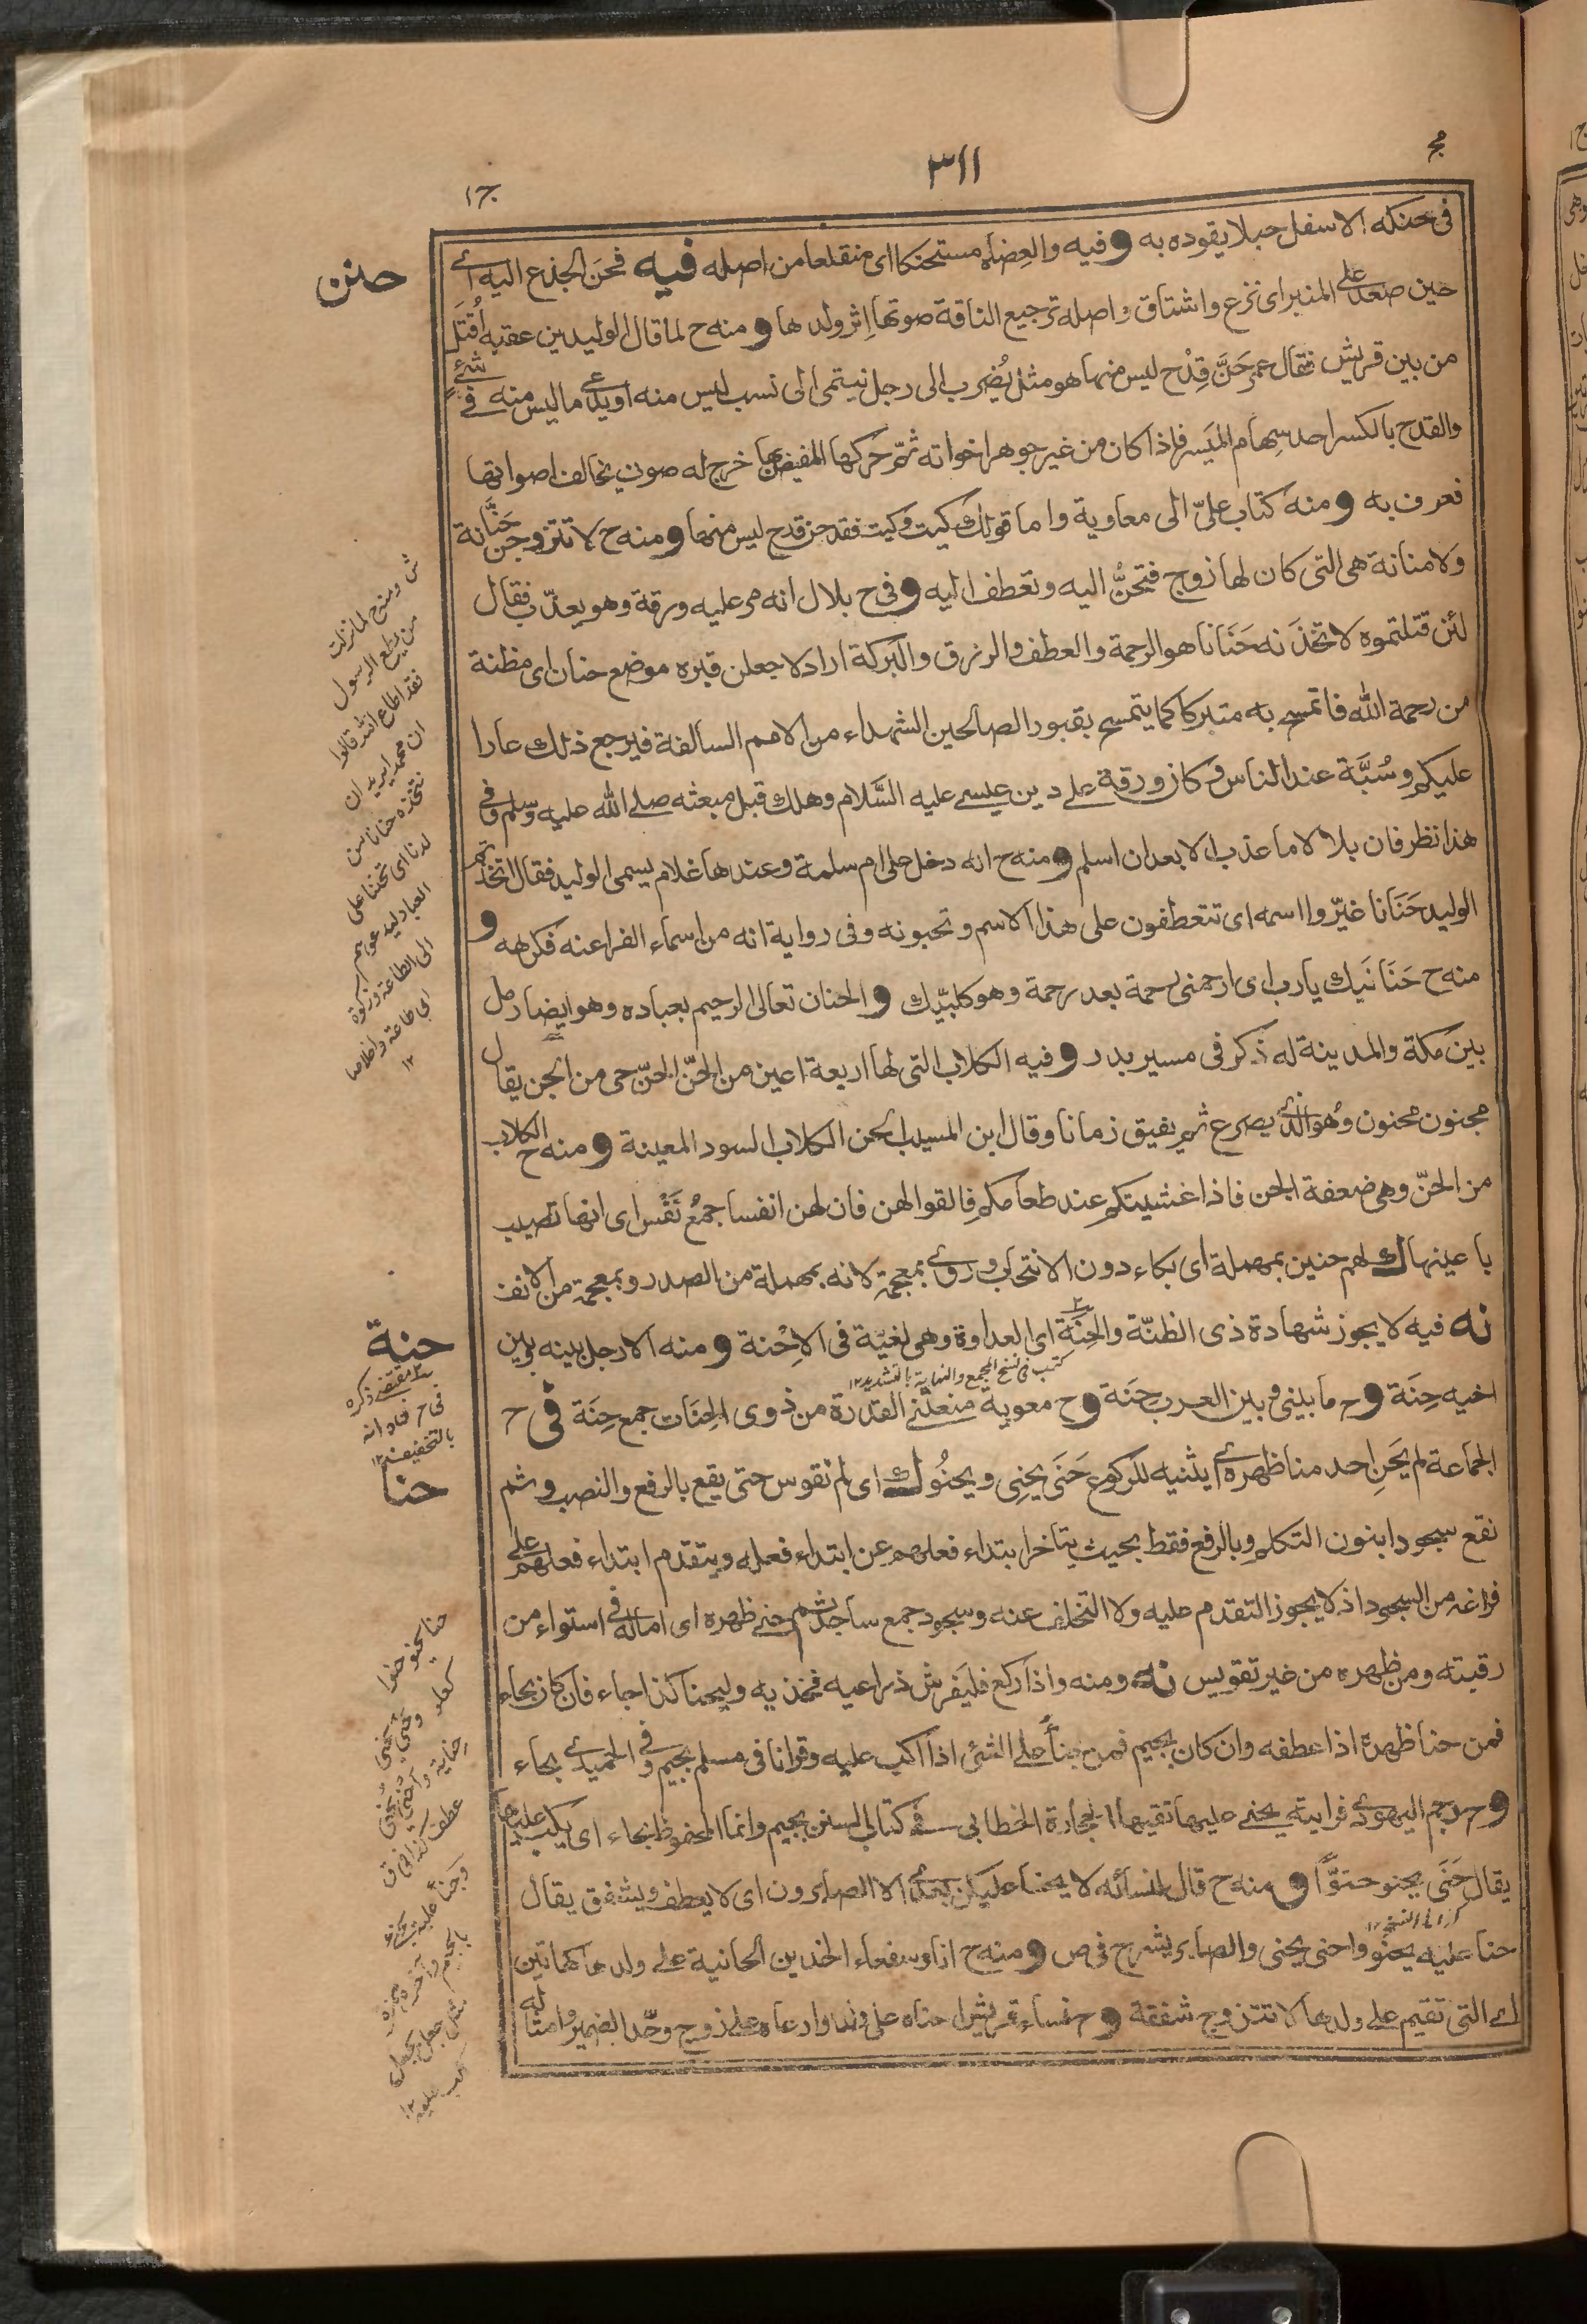 مج
٣١١
ج١
في حنكه الاسفل حبلا يقوده به و فيه والعضاه مستحنكا اى منقلعا من اصله فيه فحن الجذع اليه اے
حين صعد على المنبر اى نزع واشتاق واصله ترجيع الناقة صوتها اِثر ولدها و منه ح لما قال الوليد بن عقبه اُقتَل
من بين قريش فقال عمر حَنَّ قِدْح ليس منها هو مثل يُضرب الى رجل ينتمى الى نسب ليس منه او يدعى ما ليس منه فے شئ
والقدح بالكسر احد سهام الميسر فاذا كان من غير جوهر اخواته ثم حركها المفيض بها خرج له صوت يخالف اصواتها
فعرف به و منه كتاب علىّ الى معاوية واما قولك كيت وكيت فقد حن قدح ليس منها و منه ح لا تتزوجن حَنَّانة
ولا منانة هى التى كان لها زوج فتحنُّ اليه وتعطف اليه و فى ح بلال انه مر عليه ورقة وهو يعذّب فقال
لئن قتلتموه لاتخذَنه حَنَانا هو الرحمة والعطف والرزق والبركة اراد لاجعلن قبره موضع حنان اى مظنة
من رحمة الله فاتمسح به متبركا كما يتمسح بقبور الصالحين الشهداء من الامم السالفة فيرجع ذلك عارا
عليكم وسُبَّة عند الناس وكان ورقة على دين عيسے عليه السَّلام وهلك قبل مبعثه صلے الله عليه وسلم وفے
هذا نظر فان بلالا ما عذب الا بعد ان اسلم و منه ح انه دخل على ام سلمة وعندها غلام يسمى الوليد فقال اتخذتم
الوليد حَنَانا غيّروا اسمه اى تتعطفون على هذا الاسم وتحبونه وفى رواية انه من اسماء الفراعنه فكرهه و
منه ح حَنَانَيك يارب اى ارحمنى رحمة بعد رحمة وهو كلبّيك و الحنان تعالى الرحيم بعباده وهو ايضا رمل
بين مكة والمدينة له ذكر فى مسير بدر و فيه الكلاب التى لها اربعة اعين من الحنّ الحنّ حى من الجن يقال
مجنون محنون وهو الذى يصرع ثم يفيق زمانا وقال ابن المسيب الحن الكلاب السود المعينة و منه ح الكلاب
من الحنّ وهى ضعفة الجن فاذا غشيتكم عند طعامكم فالقوا لهن فان لهن انفسا جمعُ نَفْس اى انها تصيب
باعينها ك لهم حنين بمهملة اى بكاء دون الانتحاب وروے بمعجمة لانه بمهملة من الصدر وبمعجمة من الانف
نه فيه لا يجوز شهادة ذى الظنّة والحِنَة اى العداوة وهى لغيّة فى الاِحْنة و منه الا رجل بينه وبين
كتب فى نسخ المجمع والنهاية بالتشديد١٢
اخيه حِنَة و ح ما بينى وبين العرب حِنَة و ح معوية منعتنے القدرة من ذوى الحِنَات جمع حِنَة فى ح
الجماعة لم يَحنِ احد منا ظهره اے يثنيه للركوع حَنَى يحنِى ويحنُو ك اى لم نقوس حتى يقع بالرفع والنصب وثم
نقع سجودا بنون التكلم وبالرفع فقط بحيث يتاخر ابتداء فعلهم عن ابتداء فعله ويتقدم ابتداء فعلهم على
فراغه من السجود اذ لا يجوز التقدم عليه ولا التخلف عنه وسجود جمع ساجد ثم حنے ظهره اى اماله فى استواء من
رقبته ومن ظهره من غير تقويس نه ومنه واذا ركع فليفرش ذراعيه فخذيه وليحنا كذا جاء فان كان بحاء
فمن حنا ظهره اذا عطفه وان كان بجيم فمن جنأ على الشئ اذا اكب عليه وقرانا فى مسلم بجيم وفى الحميدى بحاء
و ح رجم اليهودى فرايته يحنے عليها تقيها الحجارة الخطابى فے كتاب السنن بجيم وانما المحفوظ بحاء اى يكب عليها
يقال حَنَى يحنو حنوًّا و منه ح قال لنسائه لا يحنا عليكن بعدى الا الصابرون اى لا يعطف ويشفق يقال
كذا فى النسخ ١٢
حنا عليه يحنُو واحنى يحنى والصابر يشرح فى ص و منه ح انا وسفعاء الخدين الحانية على ولدها كهاتين
اے التى تقيم على ولدها لا تتزوج شفقة و ح نساء قريش احناه على ولد وارعاه على زوج وحّد الضمير وامثاله
حنن
ش ومنه ح لما نزلت
من يطع الرسول
فقد اطاع الله قالوا
ان محمدا يريد ان
نتخذه حنانا من
لدنا اى تحننا على
العباد ليدعوهم
الى الطاعة وزكوة
اى طاعة واخلاصا
١٢
حنة
مقتضى ذكره
فى ح م و د انه
بالتخفيف ١٢
حنا
حنا يحنو حنوا
كعلو وحنى يحنى
حناية واحنى يُحنى
عطف كذا فى ق
وجنأ عليه يجنأ
بالجيم وآخره همزة
مثل جعل يجعل
اكب عليه ١٢